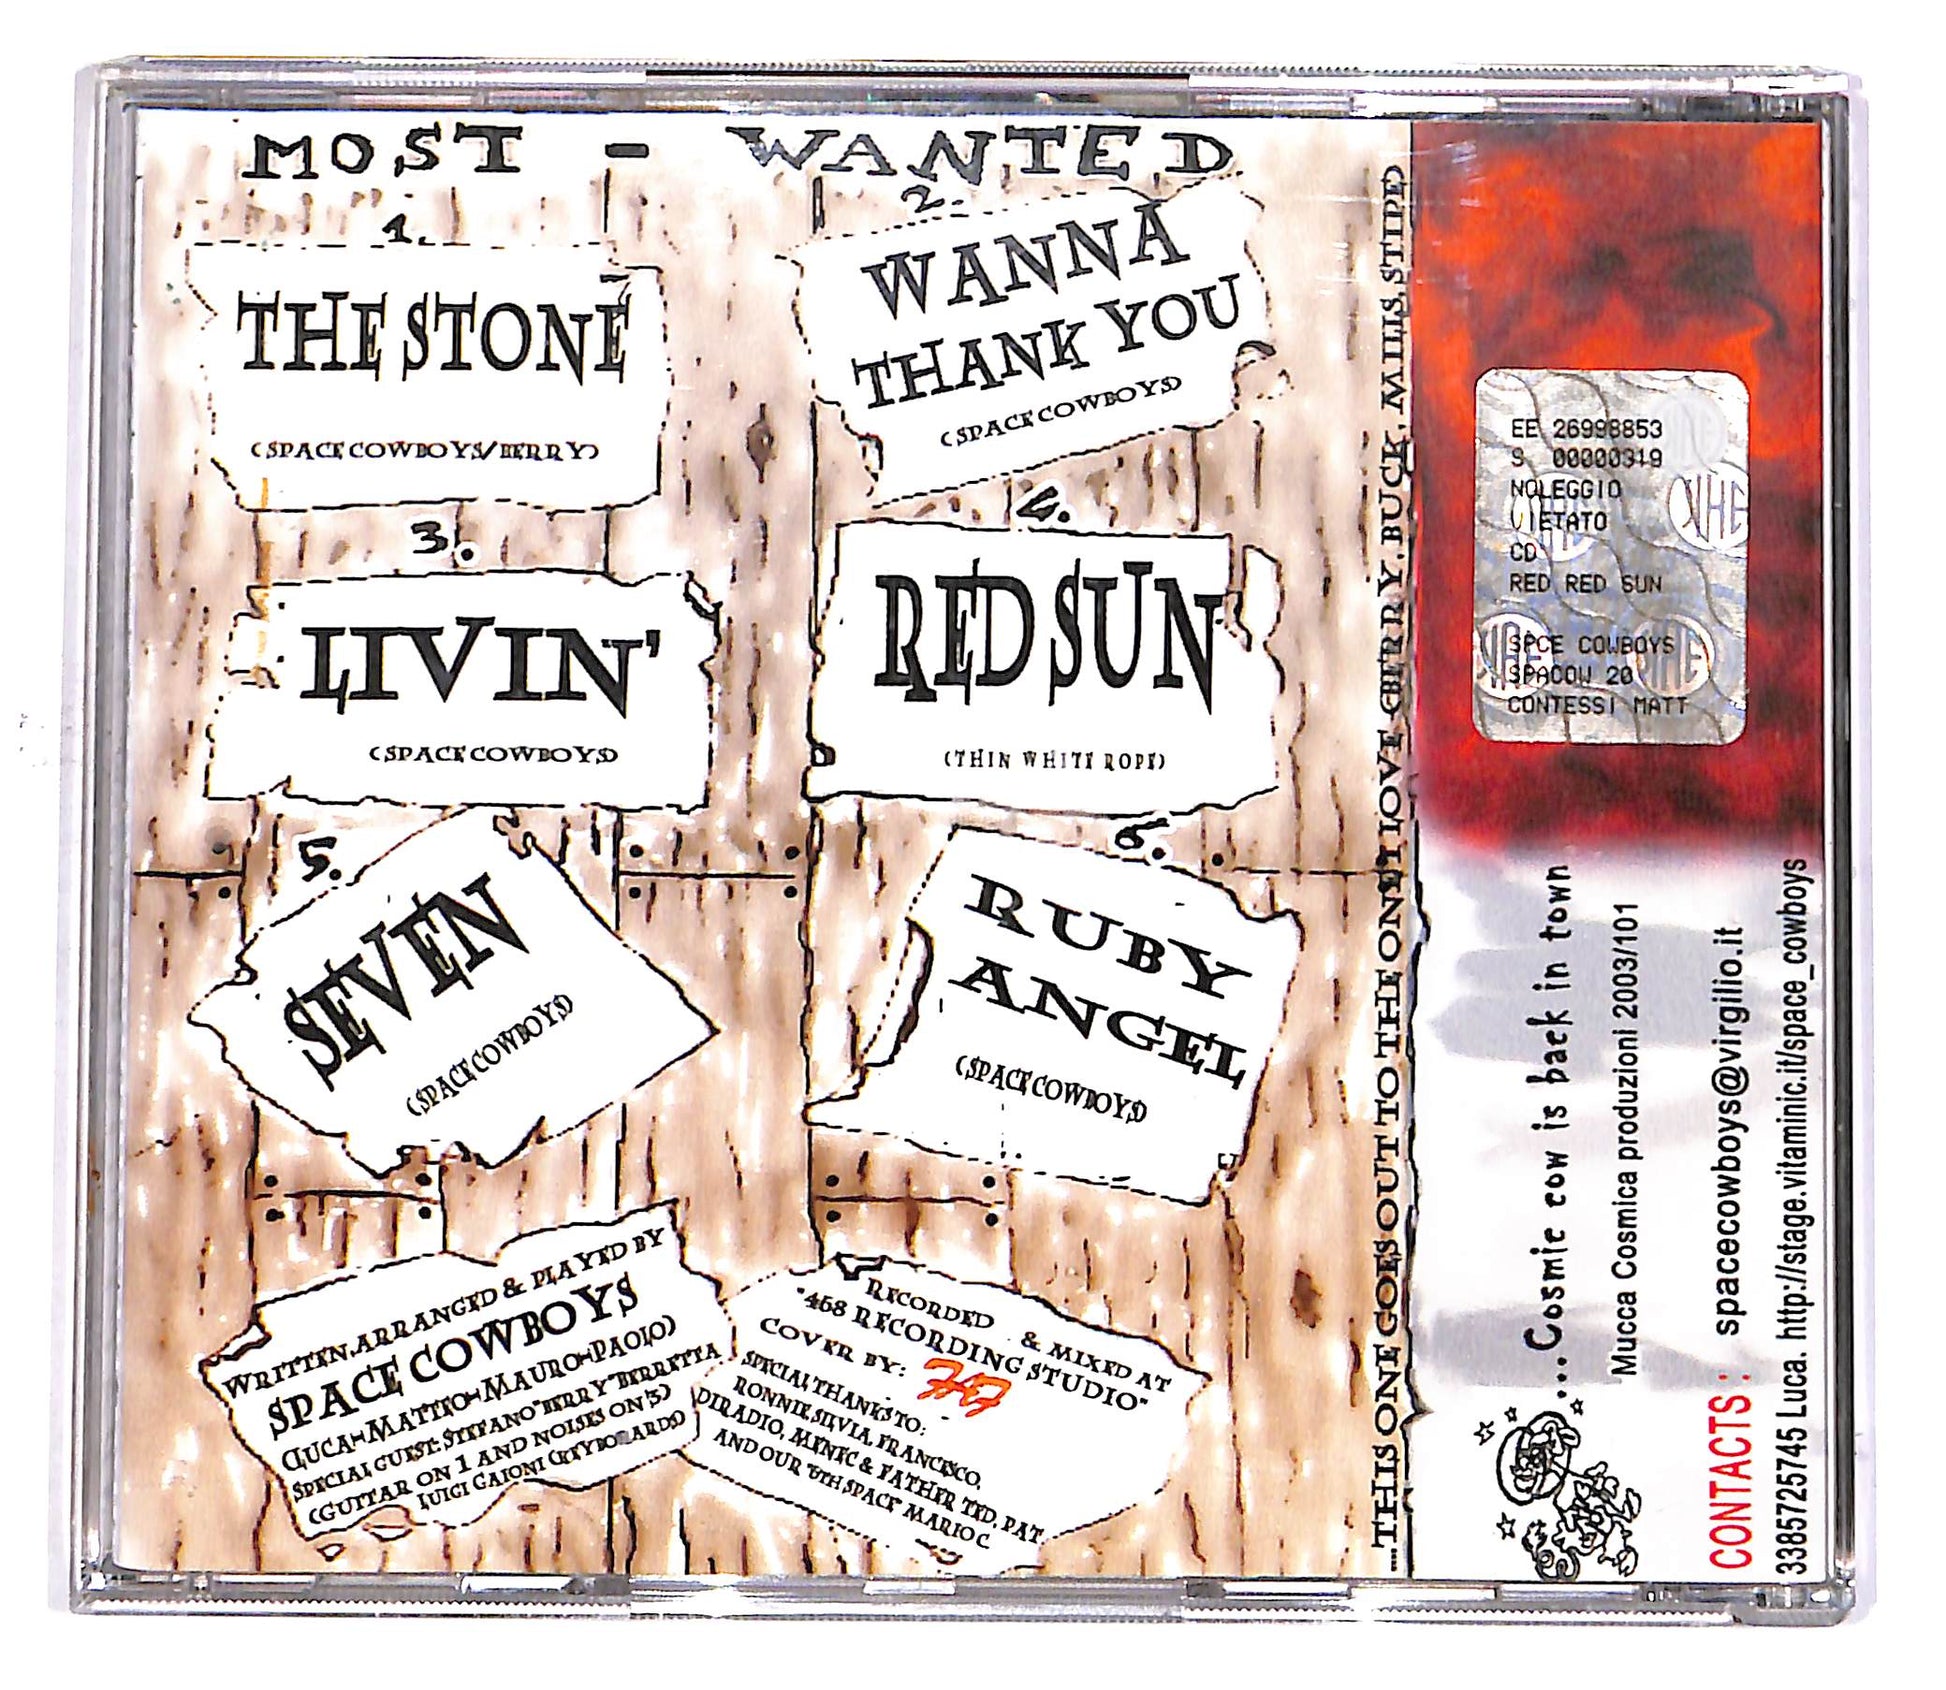 MOST - WANTED
1.
THE STONE
(SPACE COWBOYS/BERRY)
2.
WANNA
THANK YOU
(SPACE COWBOYS)
3.
LIVIN'
(SPACE COWBOYS)
4.
RED SUN
(THIN WHITE ROPE)
5.
SEVEN
(SPACE COWBOYS)
6.
RUBY
ANGEL
(SPACE COWBOYS)
WRITTEN, ARRANGED & PLAYED BY
SPACE COWBOYS
(LUCA-MATTEO-MAURO-PAOLO)
SPECIAL GUEST: STEFANO "BERRY" BERRETTA
(GUITAR ON 1 AND NOISES ON 5)
LUIGI GAIONI (KEYBOARDS)
RECORDED & MIXED AT
"468 RECORDING STUDIO"
COVER BY:
SPECIAL THANKS TO:
RONNIE, SILVIA, FRANCISCO,
DIRADIO, MENEC & FATHER TED, PAT
AND OUR "5TH SPACE" MARIO C.
...THIS ONE GOES OUT TO THE ONE I LOVE (BERRY, BUCK, MILLS, STIPE)
EE 26998853
S 00000319
NOLEGGIO
VIETATO
CD
RED RED SUN
SPCE COWBOYS
SPACOW 20
CONTESSI MATT
...Cosmic cow is back in town
Mucca Cosmica produzioni 2003/101
CONTACTS: spacecowboys@virgilio.it
3385725745 Luca. http://stage.vitaminic.it/space_cowboys